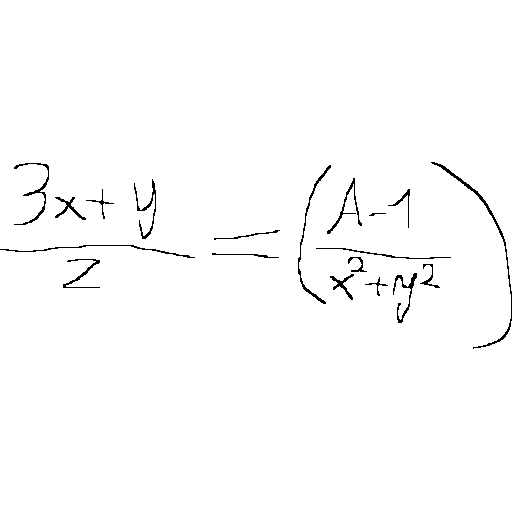 \frac{3x+y}{2} = \left( \frac{A-1}{x^2+y^2} \right)